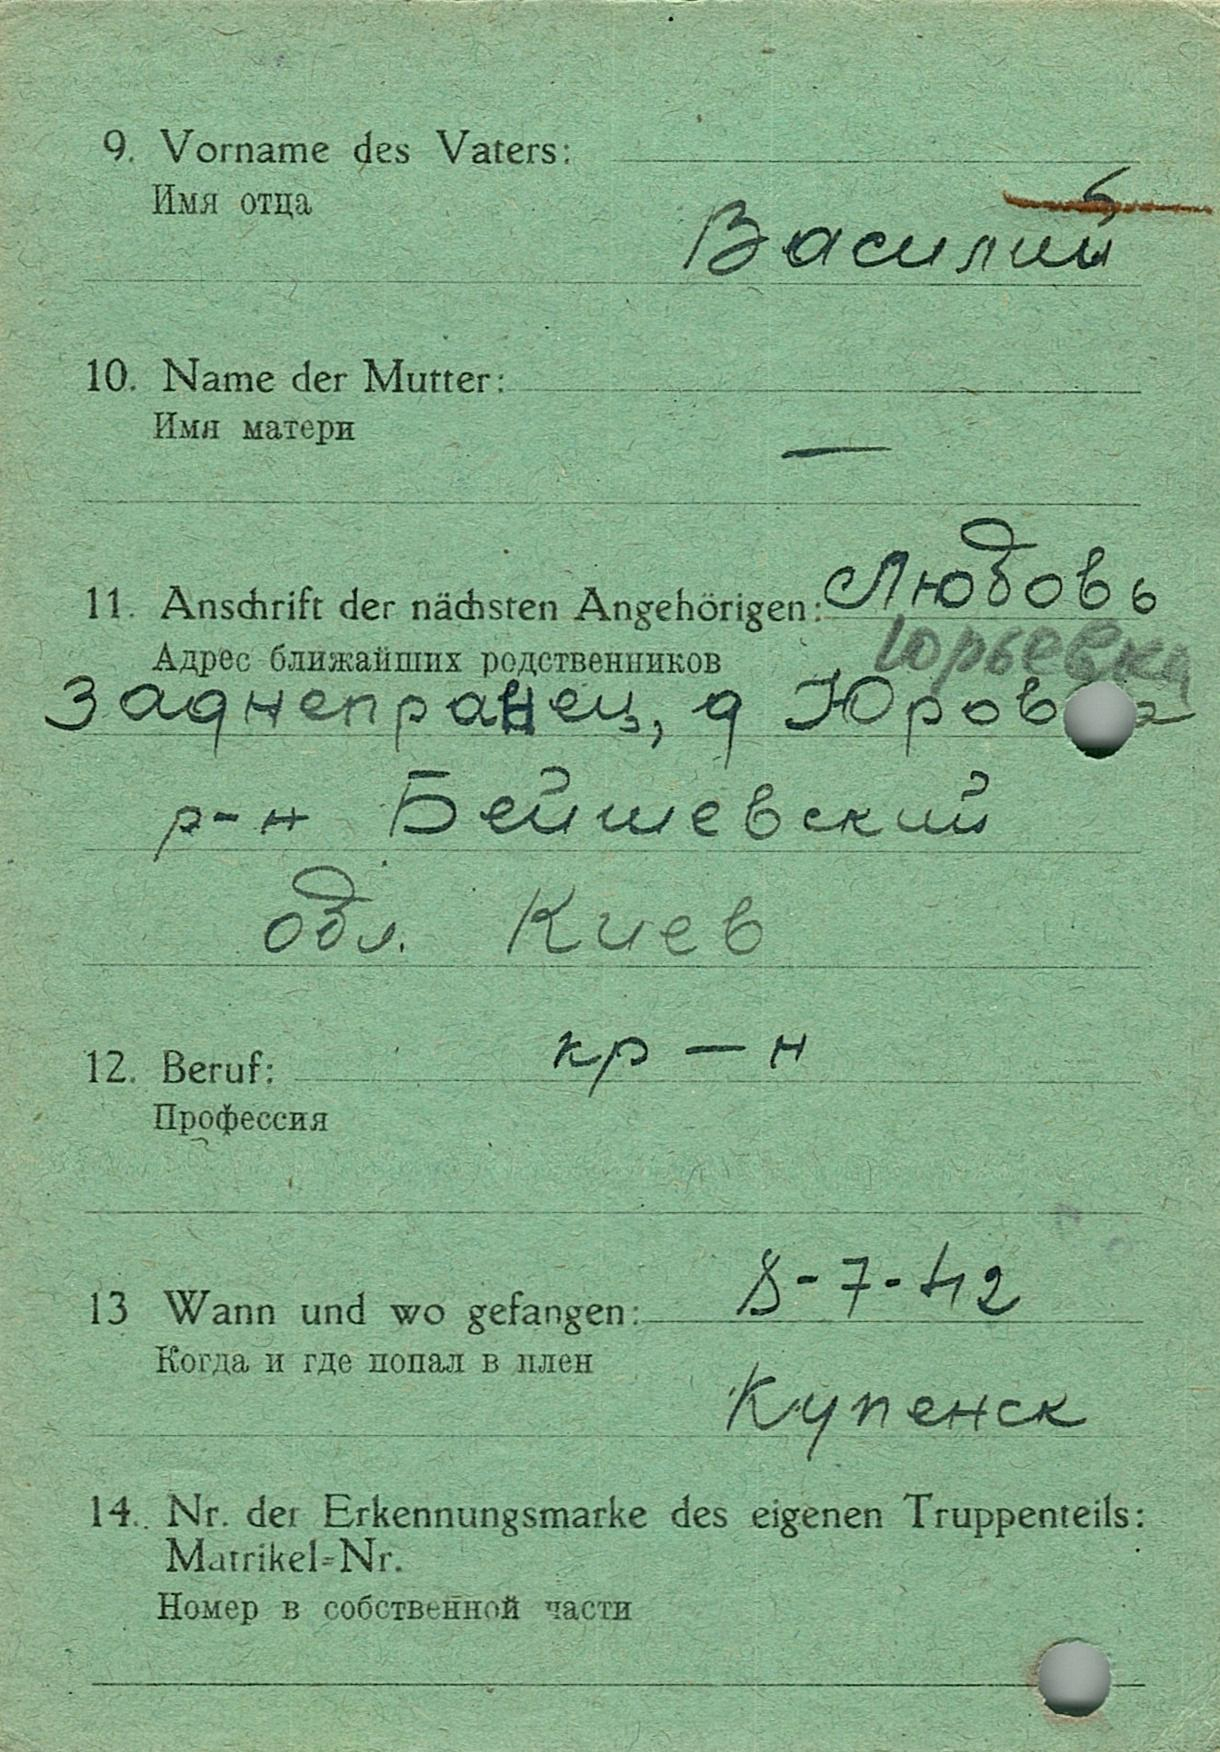 9. Vorname des Vaters:
Имя отца
Василий
10. Name der Mutter:
Имя матери
—
11. Anschrift der nächsten Angehörigen: Любовь
Адрес ближайших родственников Юрьевка
Заднепранец, д Юровка
р-н Бейшевский
обл. Киев
12. Beruf: кр — н
Профессия
13 Wann und wo gefangen: 8-7-42
Когда и где попал в плен
Купенск
14. Nr. der Erkennungsmarke des eigenen Truppenteils:
Matrikel=Nr.
Номер в собственной части